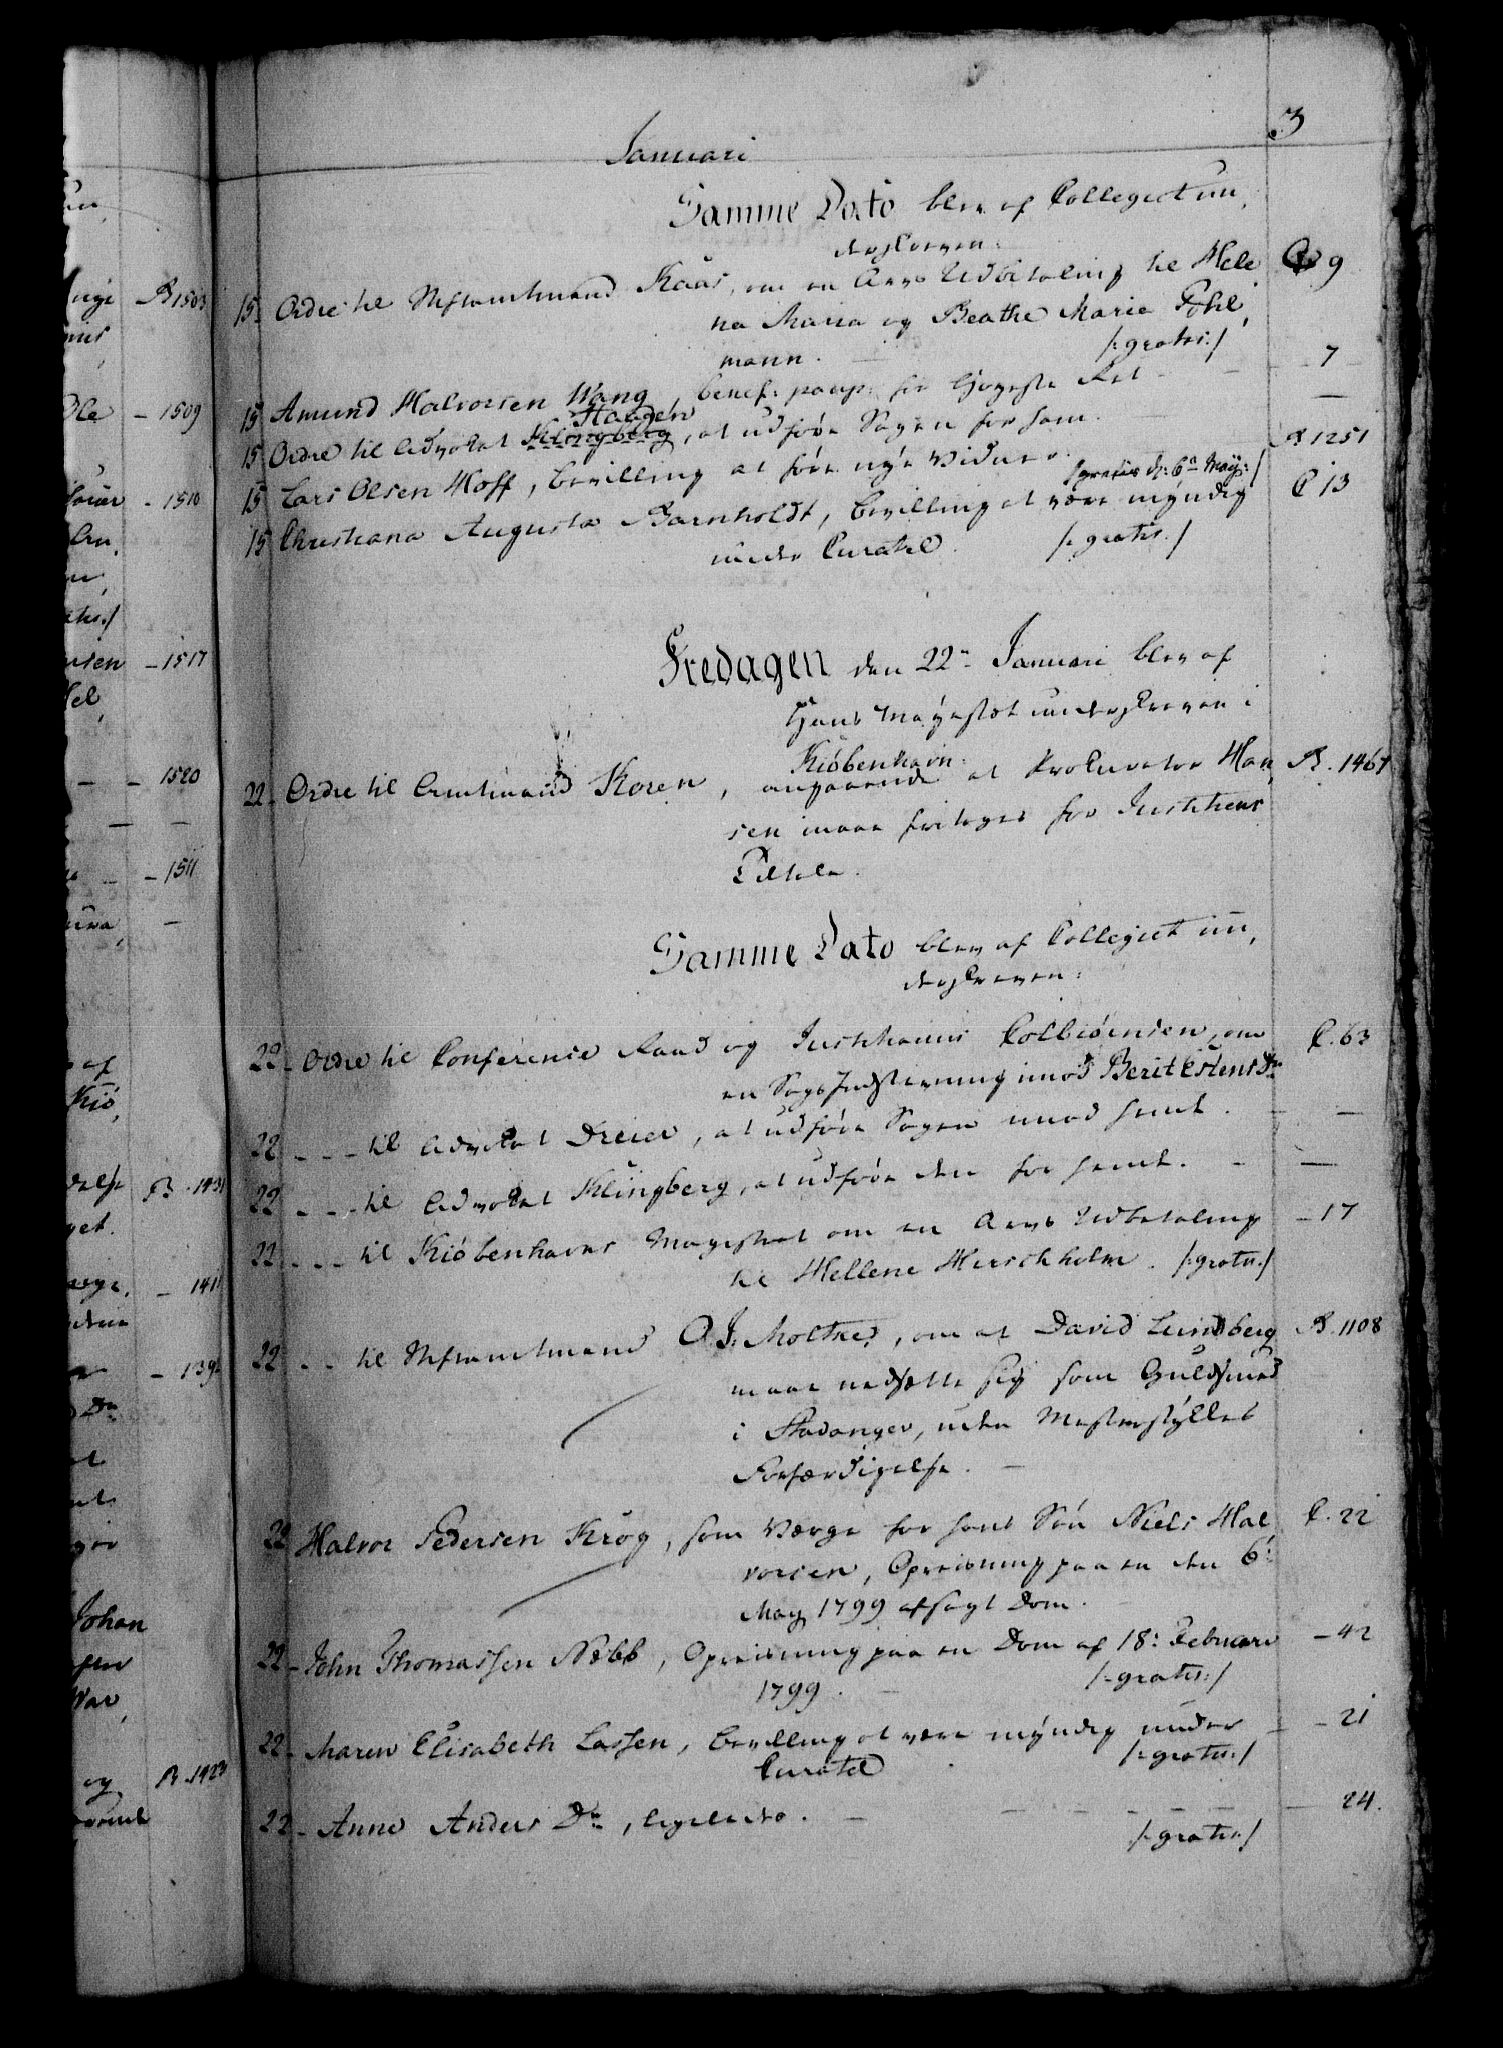 3
Januari
Samme Dato blev af Collegiet un,
derskreven:
15. Ordre til Stiftamtmand Kaas, om en Arvs Udbetaling til Hele C 9
na Maria og Beathe Marie Pohl,
mann. /:gratis:/
15 Amund Halvorsen Wang, benef: paup: for Høyeste Ret - - 7
Haagen
15 Ordre til Advokat Klingberg, at udføre Sagen for ham. —
15 Lars Olsen Hoff, Bevilling at føre nye Vidner. B 1251
/gratis d: 6te Maij:/
15 Christiana Augusta Barnholdt, Bevilling at være myndig C 13
under Curatel. /:gratis:/
Fredagen den 22de Januari blev af
Hans Majestæt underskreven i
Kiøbenhavn:
22. Ordre til Amtmand Koren, angaaende at Prokurator Han, B. 1467
sen maae fritages for Justitiens
Pleie.
Samme Dato blev af Collegiet un,
derskreven:
22. Ordre til Conference Raad og Justitiarius Colbiørnsen, om C. 63
en Sags Indstevning imod Berit Estens Dr
22. - - - til Advokat Dreier, at udføre Sagen imod hende. - —
22. - - - til Advokat Klingberg, at udføre den for hende. - —
22. - - - til Kiøbenhavns Magistrat om en Arvs Udbetaling - 17
til Hellene Herschholm. /:gratis:/
22. - - til Stiftamtmand O. J. Moltke, om at David Lundberg B. 1108
maae nedsætte sig som Guldsmed
i Stavanger, uden Mesterstykkes
Forfærdigelse. —
22 Halvor Pedersen Krog, som Værge for hans Søn Niels Hal, C. 22
vorsen, Opreisning paa en den 6te
May 1799 afsagt Dom.
22. John Thomassen Nebb, Opreisning paa en Dom af 18: Februari - 42
1799. — /:gratis:/
22. Maren Elisabeth Lassen, Bevilling at være myndig under - 21
Curatel. /:gratis:/
22. Anne Anders Dr, ligeledes. — — — — — 24.
/:gratis:/
B 1503
- 1509
- 1510
- 1517
- 1520
- 1511
B. 1431
- 141
- 139
Johan
B. 1423